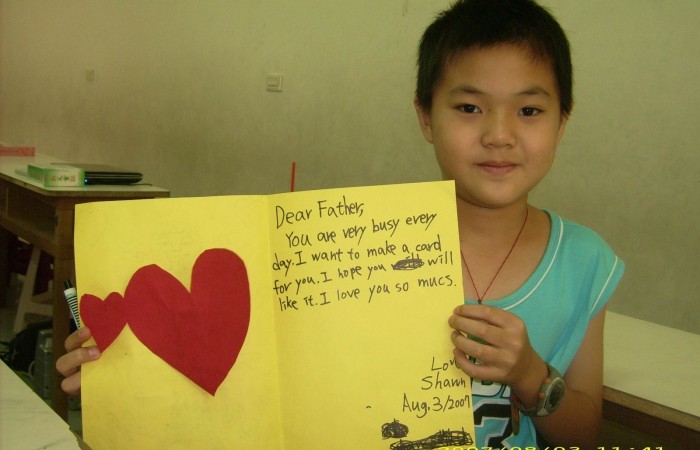 Dear Father,
You are very busy every
day. I want to make a card
for you. I hope you will
like it. I love you so mucs.
Love
Shawn
Aug. 3/2007
2007/08/03 11:41